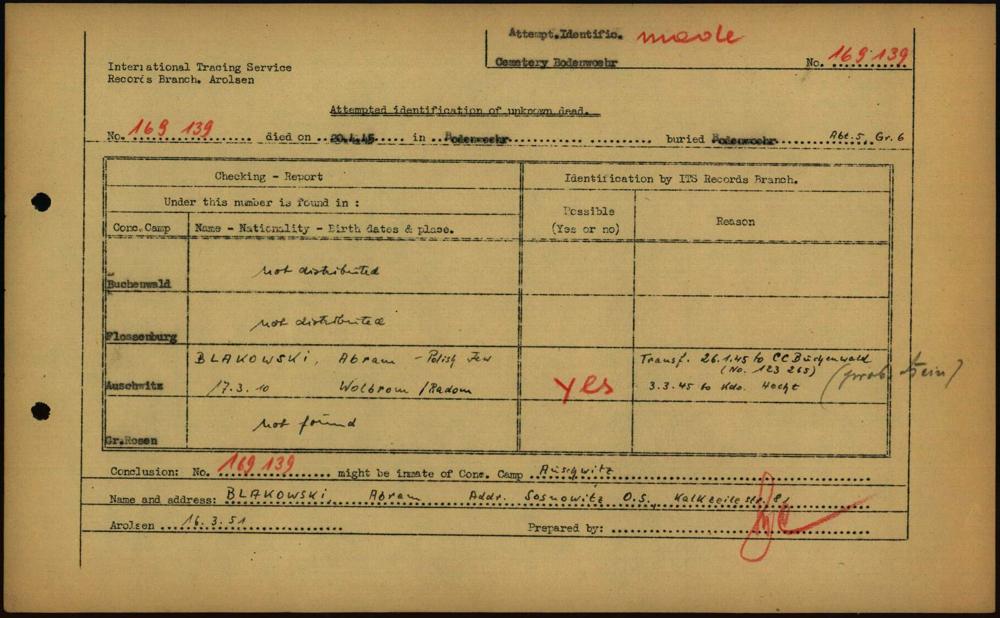 Attempt.Identific. made
Cemetery Bodenwoehr No. 169 139
International Tracing Service
Records Branch. Arolsen
Attempted identification of unknown dead.
No. 169 139 died on 20.4.45 in Bodenwoehr buried Bodenwoehr Abt.5, Gr.6
Checking - Report
Identification by ITS Records Branch.
Under this number is found in :
Possible
(Yes or no)
Reason
Conc.Camp Name - Nationality - Birth dates & place.
Buchenwald not distributed
Flossenburg not distributed
Auschwitz BLAKOWSKI, Abram - Polish Jew
17.3.10 Wolbrom /Radom
yes
Transf. 26.1.45 to CC Buchenwald
(No. 123 265)
3.3.45 to Kdo. Hecht
Gr.Rosen not found
Conclusion: No. 169 139 might be inmate of Conc. Camp Auschwitz
Name and address: BLAKOWSKI Abram Addr. Sosnowitz O.S.
Arolsen 16.3.51 Prepared by: